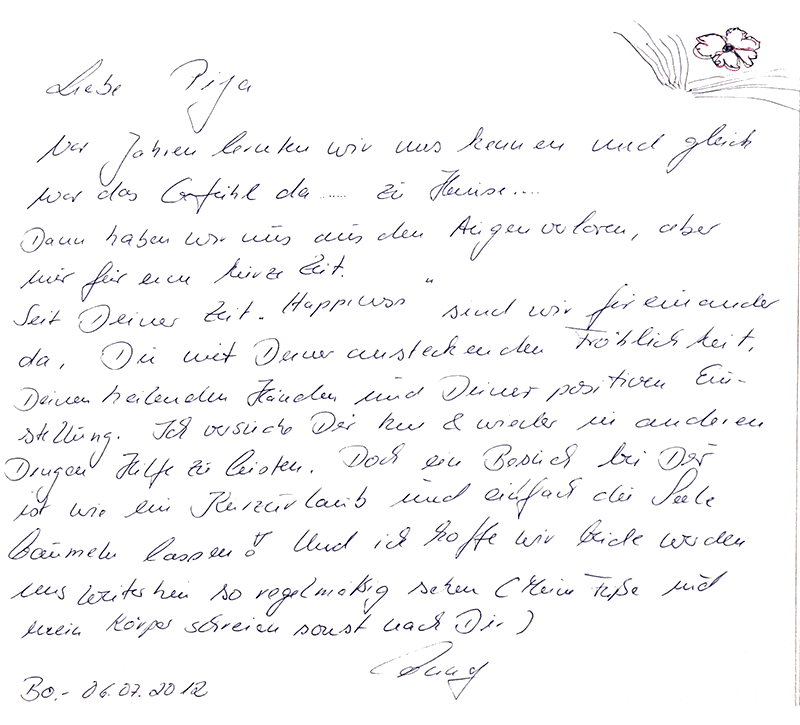 Liebe Pija
Vor Jahren lernten wir uns kennen und gleich
war das Gefühl da..... zu Hause....
Dann haben wir uns aus den Augen verloren, aber
nur für eine kurze Zeit.
Seit Deiner Zeit "Happiness" sind wir füreinander
da, Du mit Deiner ansteckenden Fröhlichkeit,
Deinen heilenden Händen und Deiner positiven Ein-
stellung. Ich versuche Dir hin & wieder in anderen
Dingen Hilfe zu leisten. Doch ein Besuch bei Dir
ist wie ein Kurzurlaub und einfach die Seele
baumeln lassen! Und ich hoffe wir beide werden
uns weiterhin so regelmäßig sehen (Meine Füße und
mein Körper schreien sonst nach Dir)
Bo.- 06.07.2012